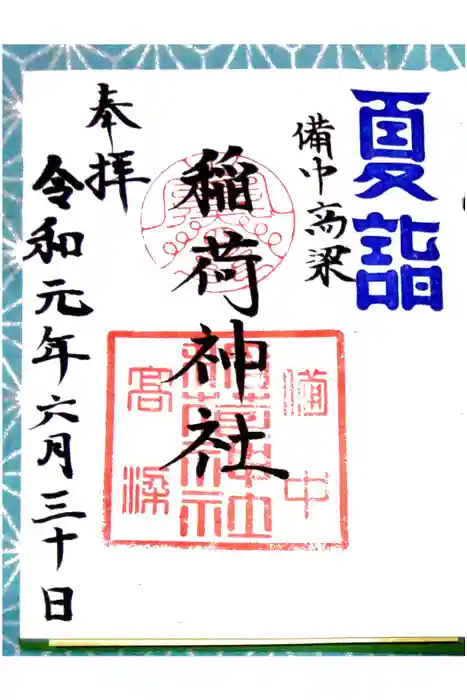 夏詣
備中高梁
稲荷神社
備中
稲荷神社
高梁
奉拝
令和元年六月三十日